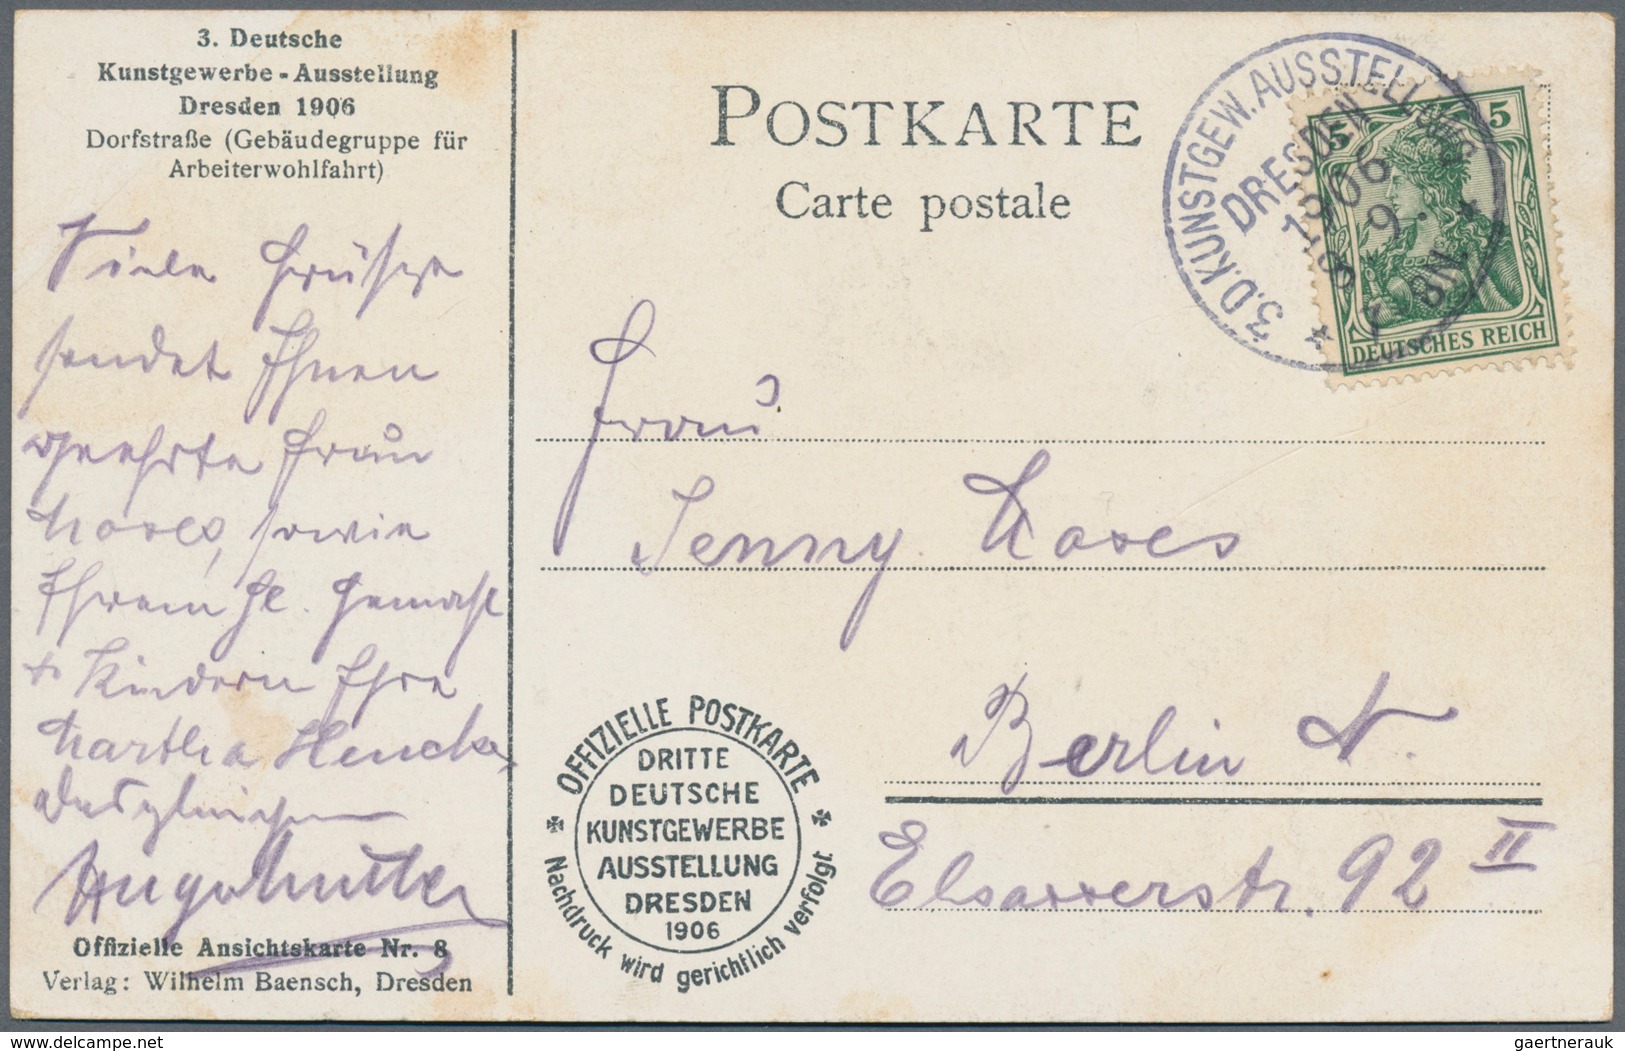 3. Deutsche
Kunstgewerbe-Ausstellung
Dresden 1906
Dorfstraße (Gebäudegruppe für
Arbeiterwohlfahrt)
Viele Grüsse
sendet Ihnen
geehrte Frau
Moses, sowie
Ihrem Hr. Gemahl
+ Kindern Ihre
Martha Hencke,
desgleichen
Offizielle Ansichtskarte Nr. 8
Verlag: Wilhelm Baensch, Dresden
POSTKARTE
Carte postale
3.D.KUNSTGEW.AUSSTELLUNG
DRESDEN
1906
9.
8N.
5 5
DEUTSCHES REICH
Frau
Jenny Moses
Berlin N.
Elsasserstr. 92 II
OFFIZIELLE POSTKARTE
DRITTE
DEUTSCHE
KUNSTGEWERBE
AUSSTELLUNG
DRESDEN
1906
Nachdruck wird gerichtlich verfolgt
gaertnerauk